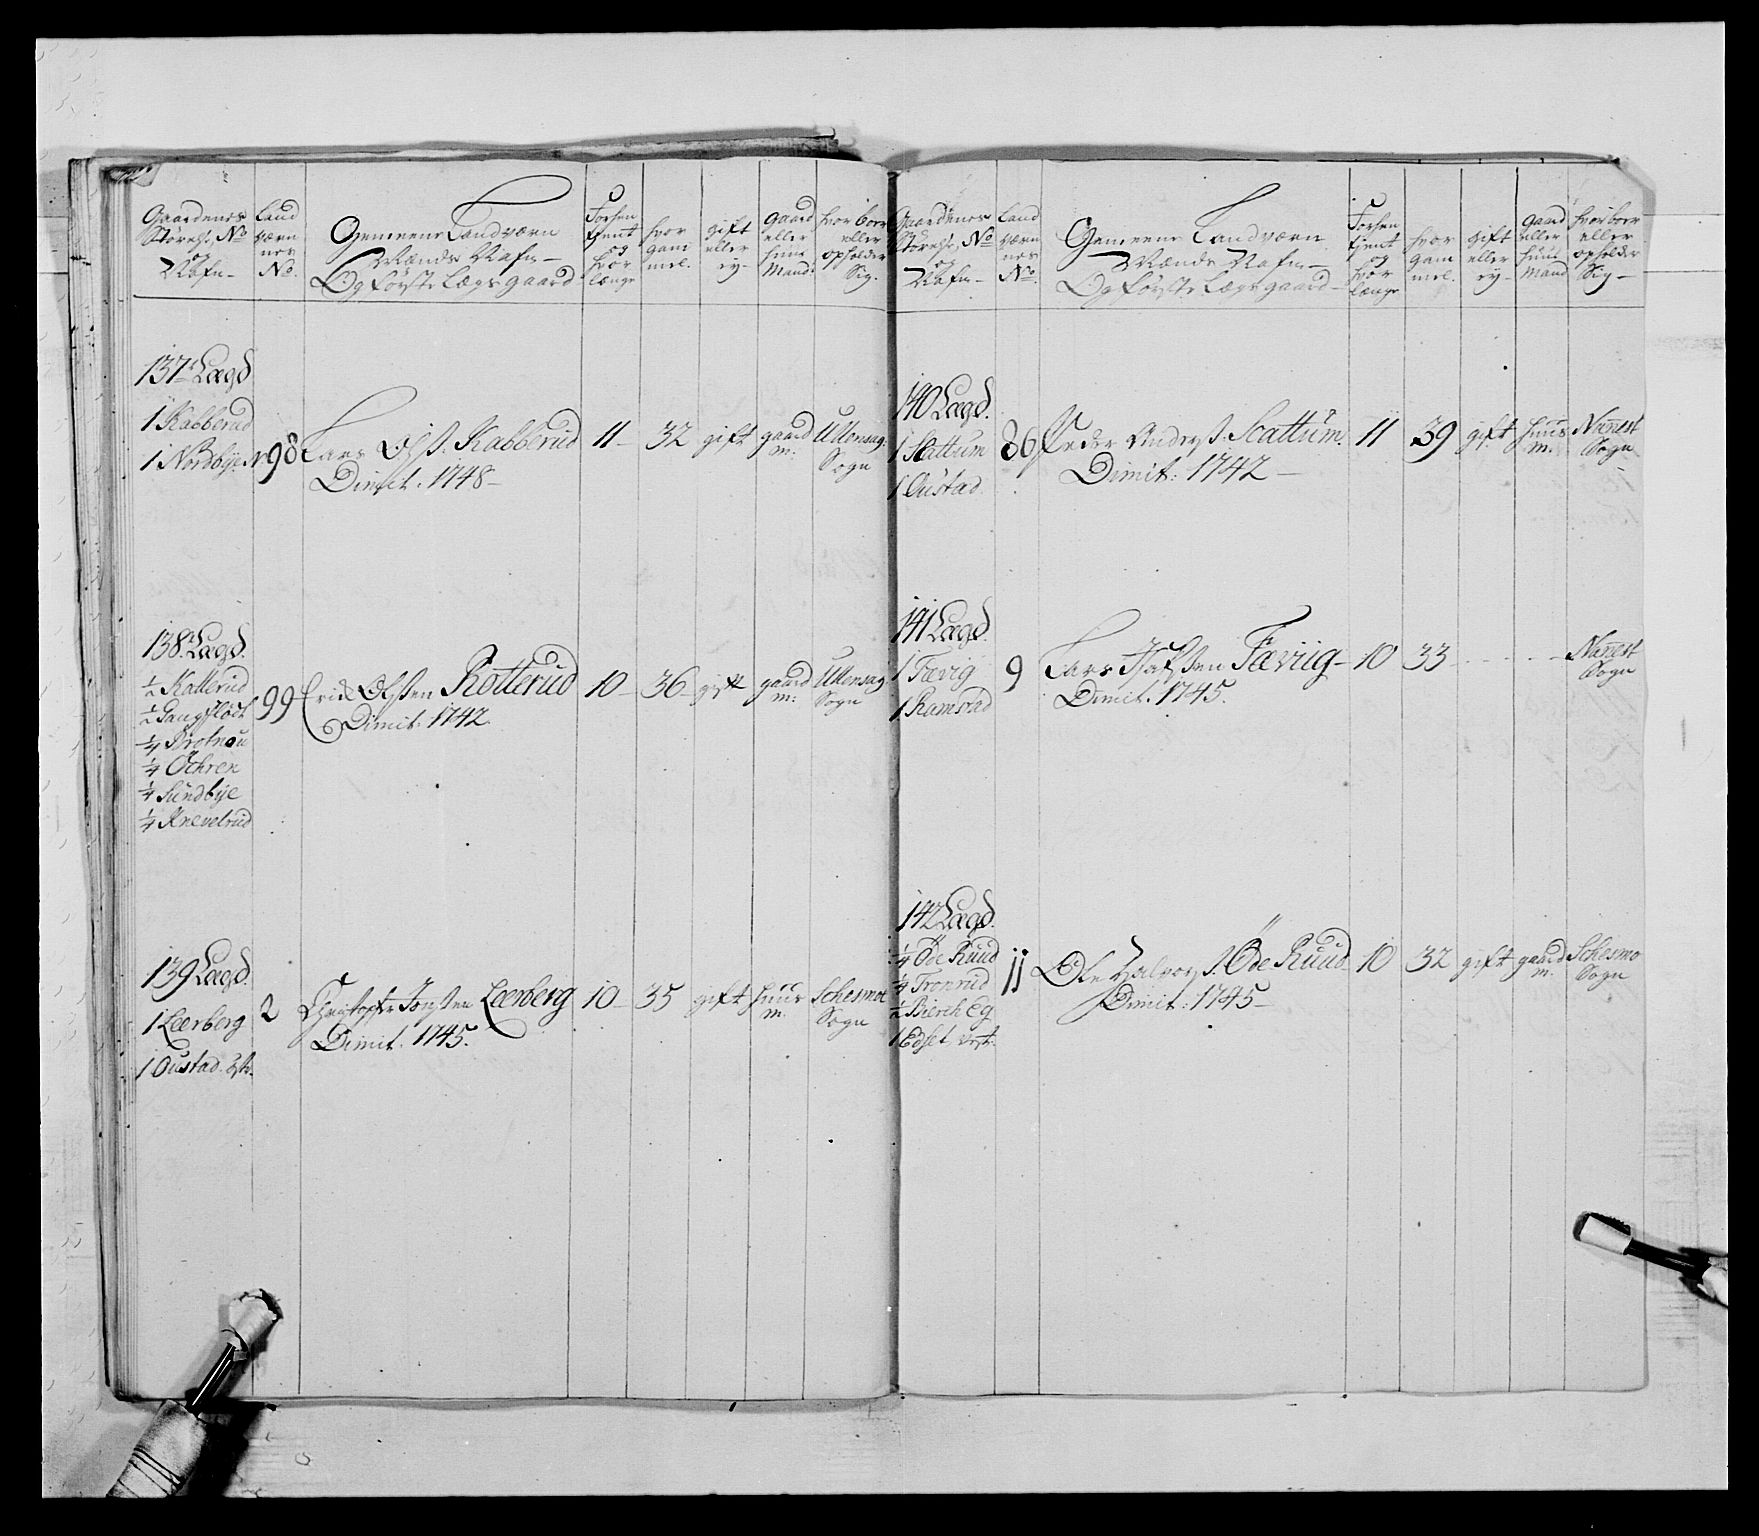 Gaardenes
Störelse, No
og
Nafn
Land
værn
nes
No.
Gemeene Landværn
Mænds Nafn
Og förste Lægs gaard
Forhen
tient
og
hvor
længe
hvor
gam
mel.
gift
eller
ey
gaard
eller
huus
Mand.
hvor boer
eller
opholder
Sig.
137 Lægd
1 Kabberud
1 Nordbye N
98
Lars Olss. Kabberud
Dimit. 1748
11
32
gift
gaard
m.
Ullensag.
Sogn
138 Lægd.
1/2 Katterud
1/2 Gangflödt
1/4 Brotnou
1/4 Ochren
1/4 Sundbye
1/4 Knevelrud
99
Erich Olssen Rotterud
Dimit. 1742.
10
36
gift
gaard
m:
Ullensag
Sogn
139 Lægd.
1 Leerberg
1 Oustad
2
Christopher Jonssen Leerberg
Dimit. 1745.
10
35
gift
huus
m.
Schesmoe
Sogn
Gaardenes
Störelse, No
og
Nafn
Land
værn
nes
No.
Gemeene Landværn
Mænds Nafn
Og förste Lægs gaard
Forhen
tient
og
hvor
længe
hvor
gam
mel.
gift
eller
ey
gaard
eller
huus
Mand
hvor boer
eller
opholder
Sig
140 Lægd.
1 Scattum
1 Oustad.
86
Peder Anders. Scattum.
Dimit: 1742
11
39
gift
huus
m.
Nanest
Sogn
141 Lægd.
1 Fævig
1 Ramstad
9
Lars Fæviig
Dimit. 1745.
10
33
Nanest
Sogn
142 Lægd.
1/4 Öde Ruud
1/4 Tronrud
1/2 Bierch Eg
1 Edset vest.
11
Ole Halvors. Öde Ruud
Dimit: 1745
10
32
gift
gaard
m.
Schesmo
Sogn